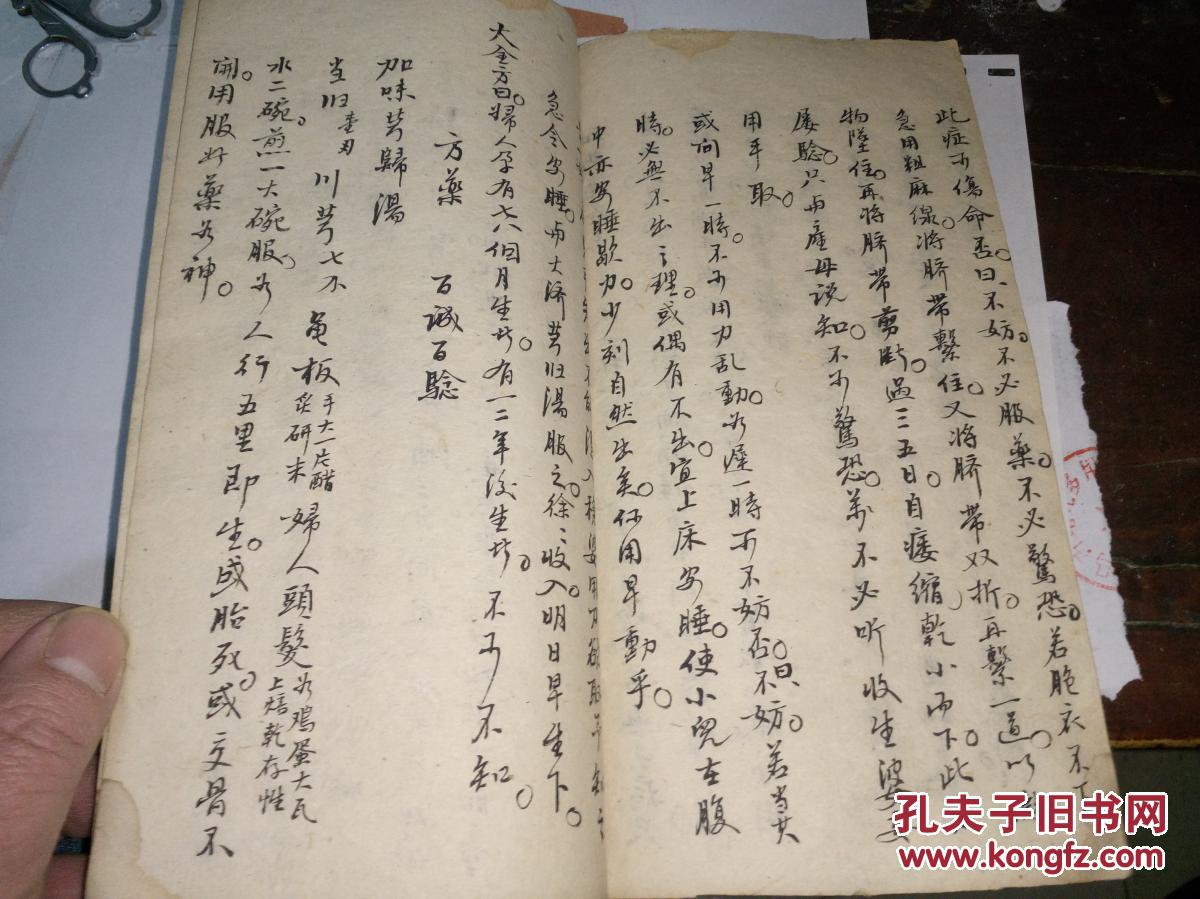 此症可傷命否。曰、不妨。不必服藥。不必驚恐。若胞衣不下
急用粗麻線。將臍帶繫住。又將臍帶双折。再繫一道。以
物墜住。再將臍帶剪斷。過三五日。自痿縮乾小而下。此
屡驗。只由產母說知。不可驚恐。萬不必听收生婆
用手取。
或问早一時。不可用力乱動。若遲一時可不妨否。曰、不妨。若当其
時。必無不出之理。或偶有不出。宜上床安睡。使小兒在腹
中亦安睡歇力。少刻自然生矣。何用早動乎。
急令安睡。由大濟芎归湯服之。徐〻收入。明日早生下。
大全方曰。婦人孕有七八個月生者。有一二年後生者。不可不知。
方藥 百試百驗
加味芎歸湯
当归壹刄 川芎七 龟板手大一片醋炙研末 婦人頭髮如鸡蛋大瓦上焙乾存性
水二碗。煎一大碗服。如人行五里即生。或胎死。或交骨不
開。用服好藥如神。
孔夫子旧书网
www.kongfz.com